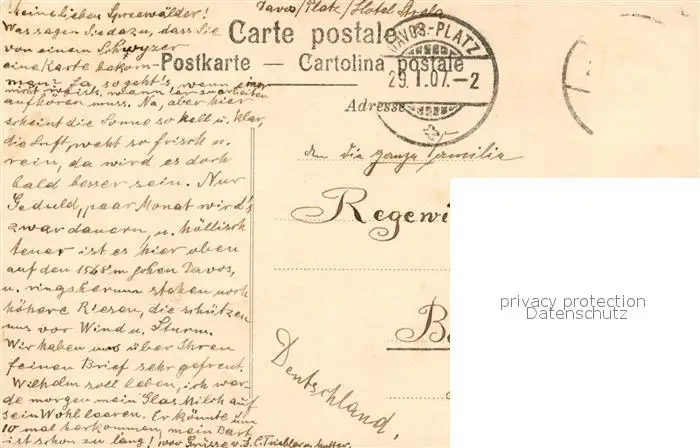 Meine lieben Spreewälder!
Davos/Platz/Hotel Strela
Was sagen Sie dazu, dass Sie
von einem Schwyzer
eine Karte bekom-
men? Ja, so geht's, wenn einer
nicht weiss, wann er zu arbeiten
aufhören muss. Na, aber hier
scheint die Sonne so hell u. klar,
die Luft weht so frisch u.
rein, da wird es doch
bald besser sein. Nur
Geduld, paar Monat wird's
zwar dauern, u. höllisch
teuer ist es hier oben
auf den 1568 m hohen Davos,
u. ringsherum stehen noch
höhere Riesen, die schützen
uns vor Wind u. Sturm.
Wir haben uns über Ihren
feinen Brief sehr gefreut.
Wilhelm soll leben, ich wer-
de morgen mein Glas Milch auf
sein Wohl leeren. Er könnte um
10 mal herkommen, mein Bart
ist schon zu lang! 1000 Grüsse v.
Carte postale
Postkarte — Cartolina postale
DAVOS-PLATZ
29.I.07.-2
Adresse
An die ganze Familie
Regew
B
Deutschland,
privacy protection
Datenschutz